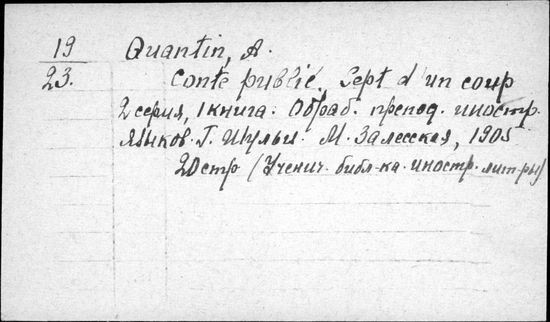 19
23.
Quantin, A.
Conte publié. Sept d'un coup
2 серия, 1 книга. Обраб. препод. иностр.
языков. Г. Шульц. М. Залесская, 1905
20 стр (Ученич. библ-ка. иностр. лит-ры)